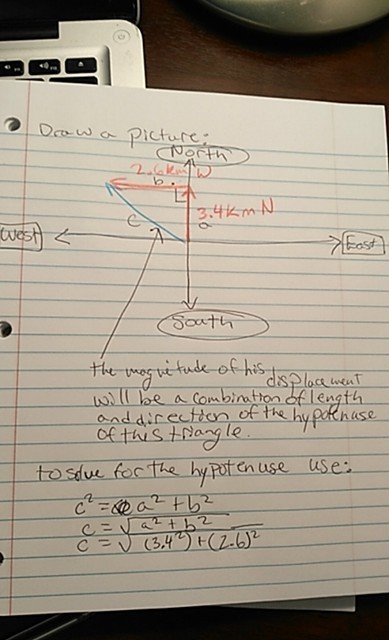 Draw a picture:
North
2.6km W
b.
3.4km N
a
c
West
East
South
the magnitude of his displacement
will be a combination of length
and direction of the hypotenuse
of this triangle.
to solve for the hypotenuse use:
c² = a² + b²
c = √a² + b²
c = √(3.4²) + (2.6)²